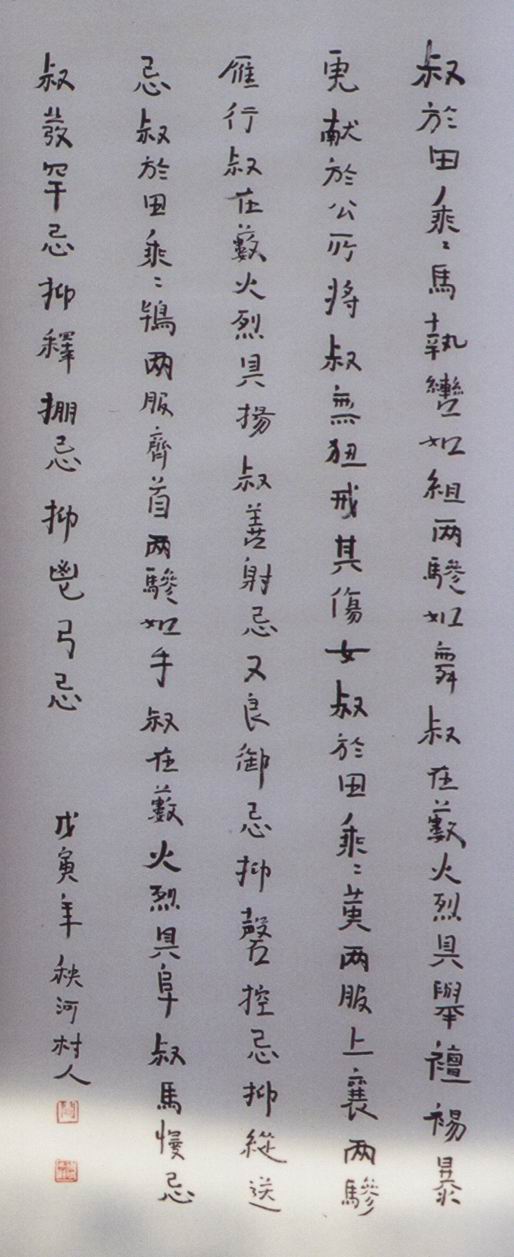 叔於田乘〻馬執轡如組兩驂如舞叔在藪火烈具舉襢裼暴
乕献於公所将叔無狃戒其傷女叔於田乘〻黄兩服上襄兩驂
雁行叔在藪火烈具揚叔善射忌又良御忌抑磬控忌抑縱送
忌叔於田乘〻鴇兩服齊首兩驂如手叔在藪火烈具阜叔馬慢忌
叔發罕忌抑釋掤忌抑鬯弓忌
戊寅年秧河村人